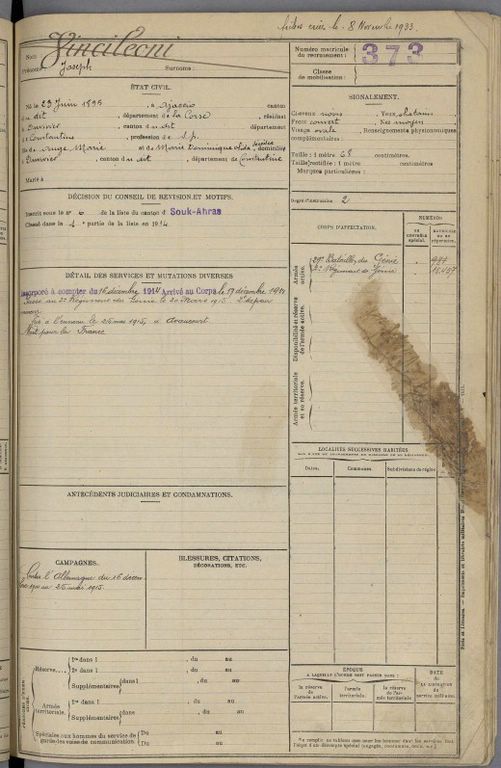 le 8 Novembre 1933.
Nom : Vincileoni
Prénoms : Joseph Surnoms :
Numéro matricule du recrutement : 373
Classe de mobilisation :
ÉTAT CIVIL.
Né le 23 Juin 1895, à Ajaccio canton
du dit, département de la Corse, résidant
à Duvivier, canton du dit département
de Constantine, profession de S.p.
fils de Ange Marie et de Marie Dominique domiciliés
à Duvivier, canton du dit, département de Constantine
Marié à
SIGNALEMENT.
Cheveux noirs Yeux chatains
Front couvert Nez moyen
Visage ovale Renseignements physionomiques
complémentaires :
Taille : 1 mètre 68 centimètres.
Taille rectifiée : 1 mètre centimètres
Marques particulières :
Degré d'instruction : 2
DÉCISION DU CONSEIL DE REVISION ET MOTIFS.
Inscrit sous le n° 6 de la liste du canton d Souk-Ahras
Classé dans la 1e partie de la liste en 1914
DÉTAIL DES SERVICES ET MUTATIONS DIVERSES
Incorporé à compter du 16 décembre 1914 Arrivé au Corps le 17 décembre 1914
Passé au 2e Régiment du Génie le 20 Mars 1915
Tué à l'ennemi le 25 mai 1915, à
Mort pour la France
CORPS D'AFFECTATION.
NUMÉROS
au contrôle spécial.
matricule ou au répertoire.
Armée active.
Bataillon du Génie
2e Régiment du Génie
Disponibilité et réserve de l'armée active.
Armée territoriale et sa réserve.
LOCALITÉS SUCCESSIVES HABITÉES
Dates. Communes. Subdivisions de région
ANTÉCÉDENTS JUDICIAIRES ET CONDAMNATIONS.
CAMPAGNES.
Contre l'Allemagne du 16 décem
bre 1914 au 25 mai 1915.
BLESSURES, CITATIONS,
DÉCORATIONS, ETC.
Réserve
1re dans l , du au
2e dans l , du au
Supplémentaires dans l , du au
Armée territoriale.
1re dans l , du au
Supplémentaires dans , du au
Spéciales aux hommes du service de garde des voies de communication.
Du au
Du au
ÉPOQUE
À LAQUELLE L'HOMME DOIT PASSER DANS :
la réserve de l'armée active.
l'armée territoriale.
la réserve de l'armée territoriale.
DATE